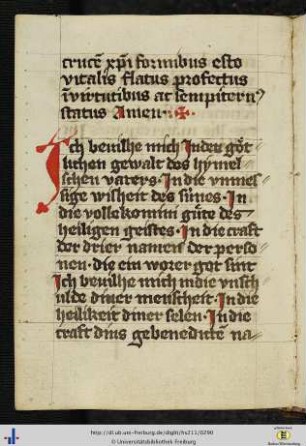 crucē xp̄i fornibus esto
vitalis flatus profectus
ī virtutibus ac sempiternꝰ
status Amen ✠
Ich beuilhe mich In den gȯt
lichen gewalt des hymel
schen vaters · In die vnmes
sige wisheit des sunes · In
die volkokomini gůte des
heiligen geistes · In die craft
der drier namen der perso
nen · die ein worer got sint
Ich beuilhe mich in die vnsch
ulde diner menscheit · In die
heilikeit diner selen · In die
craft dins gebenedictē na
http://dl.ub.uni-freiburg.de/diglit/hs211/0290
© Universitätsbibliothek Freiburg